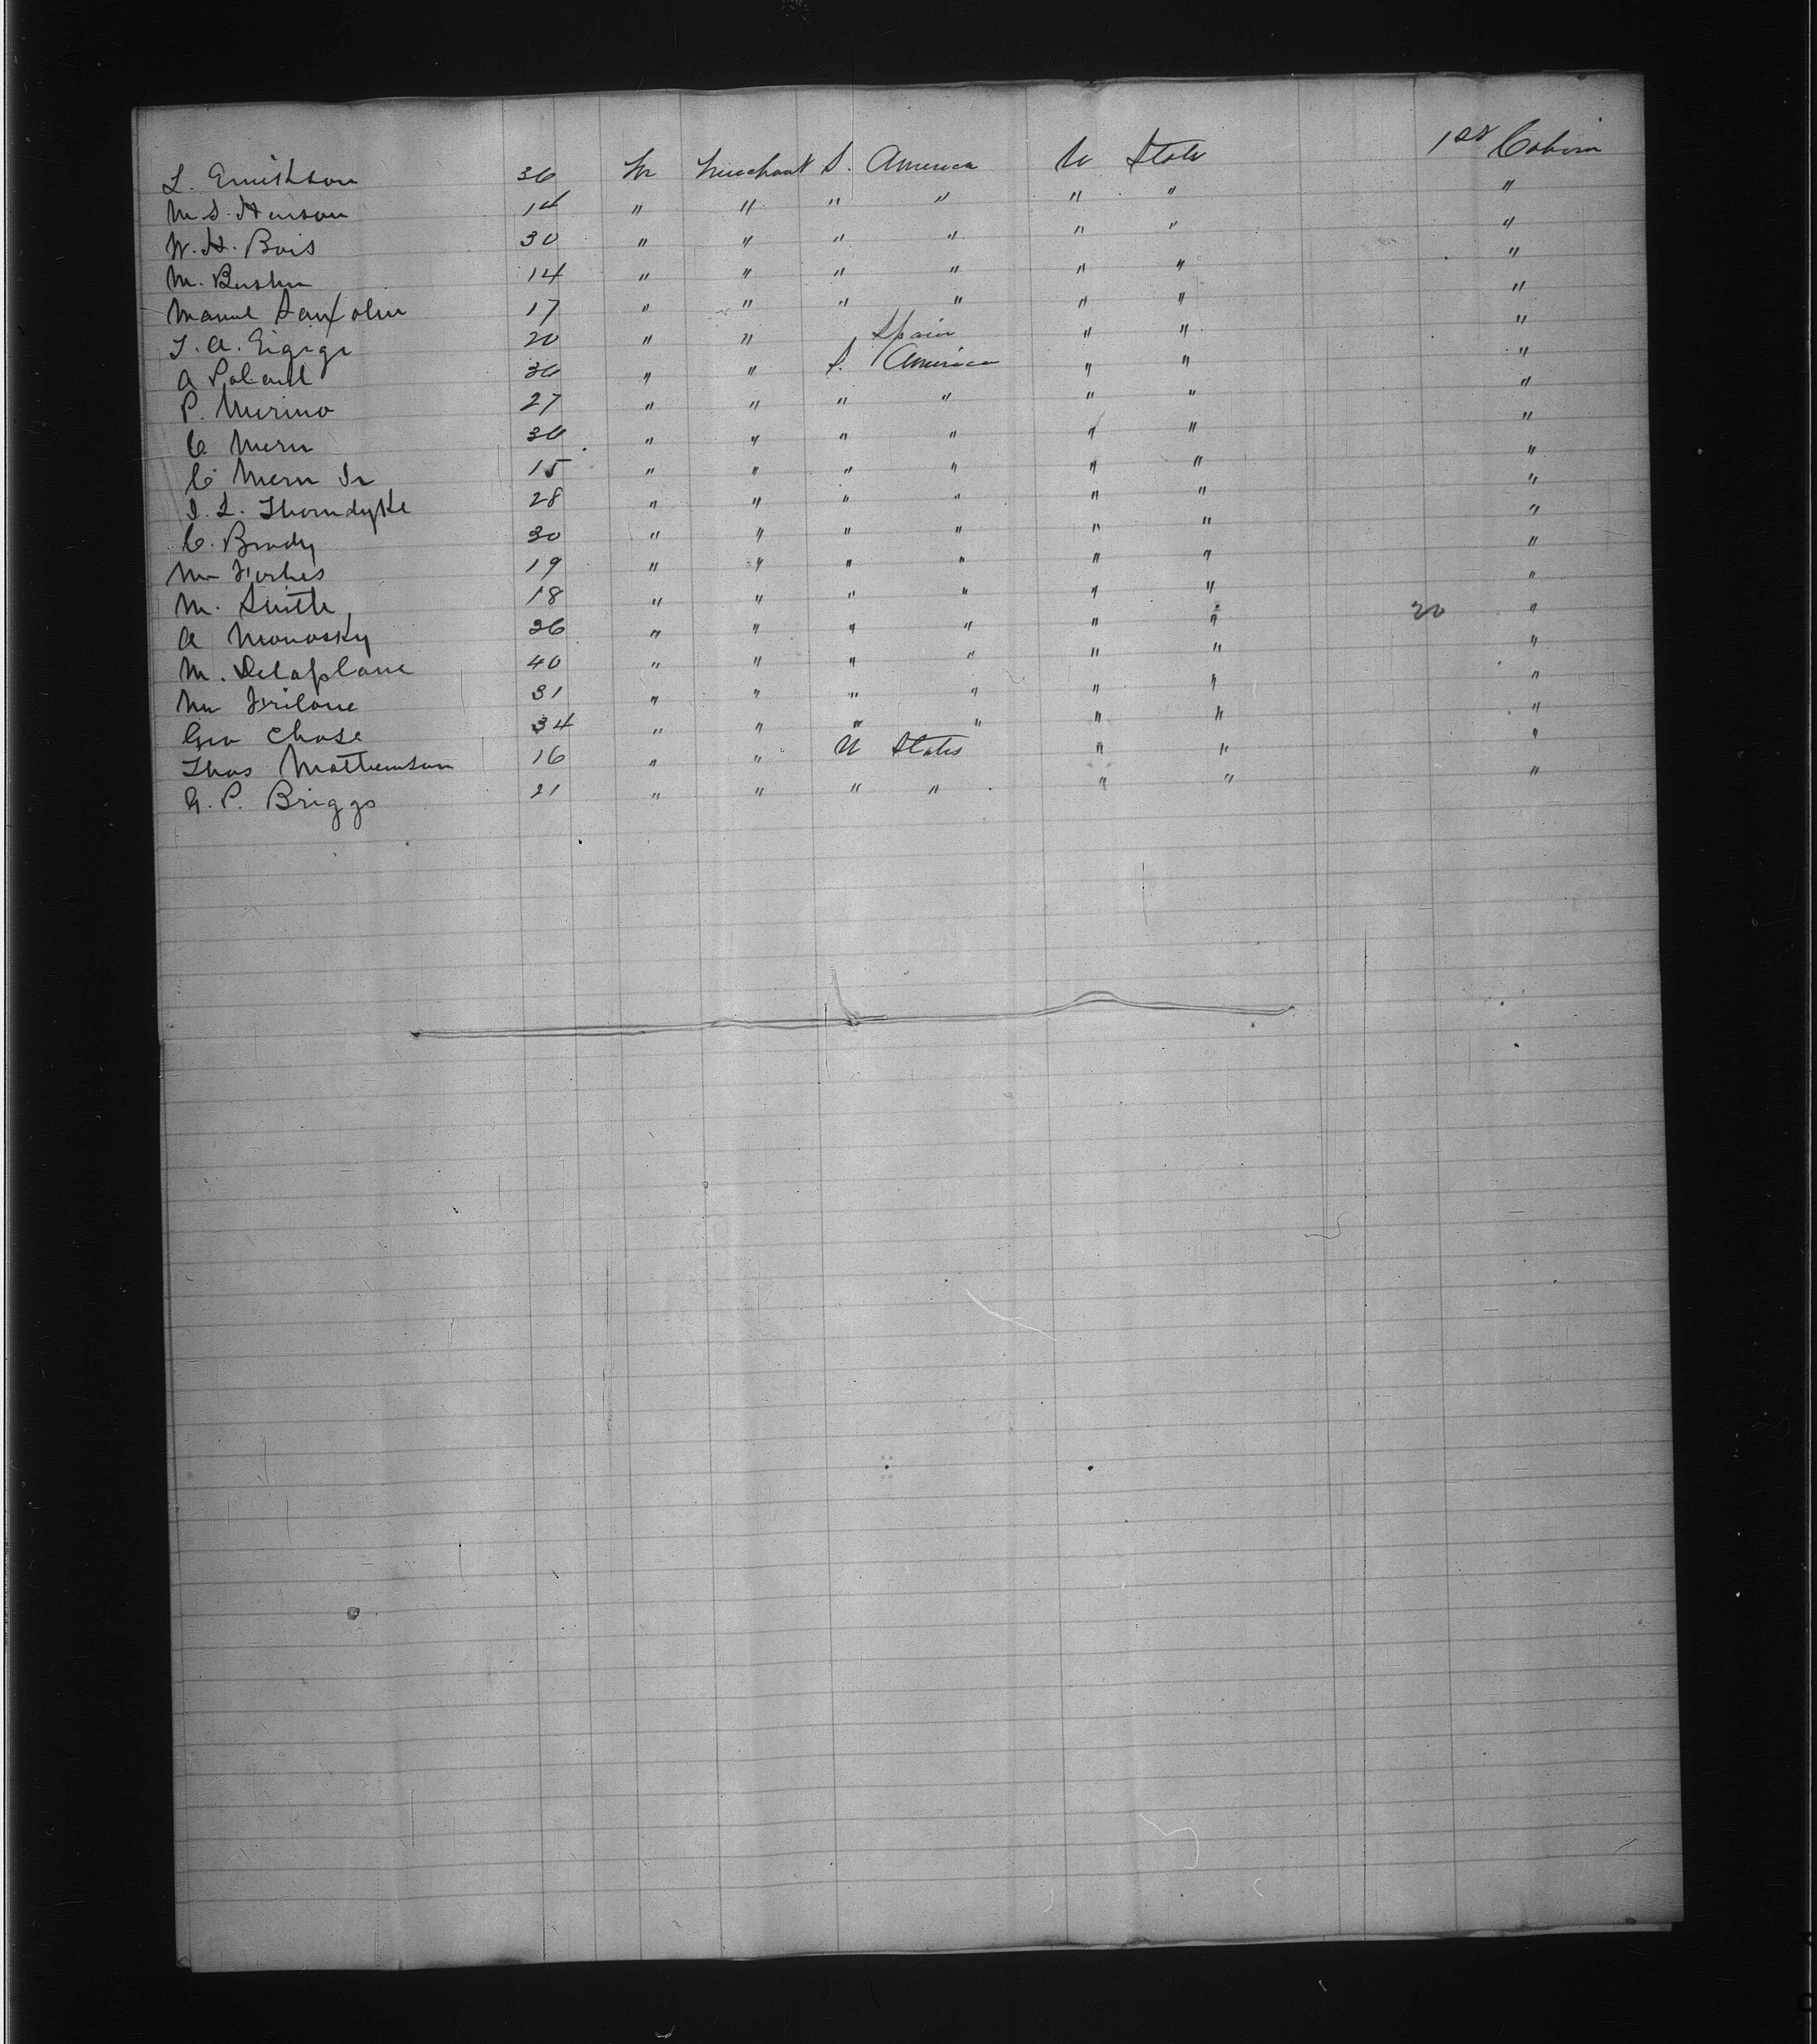 L. 36 m Merchant S. America U State 1st Cabin
M. S. Henson 14 " " " " " " "
W. H. Bois 30 " " " " " " "
M. 14 " " " " " " "
Manuel 17 " " " " " " "
20 " " Spain " " "
A 36 " " S. America " " "
P. Merino 27 " " " " " " "
C Mern 30 " " " " " " "
C Mern Jr 15 " " " " " " "
L. Thorndyke 28 " " " " " " "
C. Brady 30 " " " " " " "
Mr Forbes 19 " " " " " " "
M. Smith 18 " " " " " " "
A Monosky 36 " " " " " " 20 "
M. Delaplane 40 " " " " " " "
Mr 31 " " " " " " "
Geo Chase 34 " " " " " " "
Thos Mathewson 16 " " U States " " "
G. P. Briggs 21 " " " " " " "